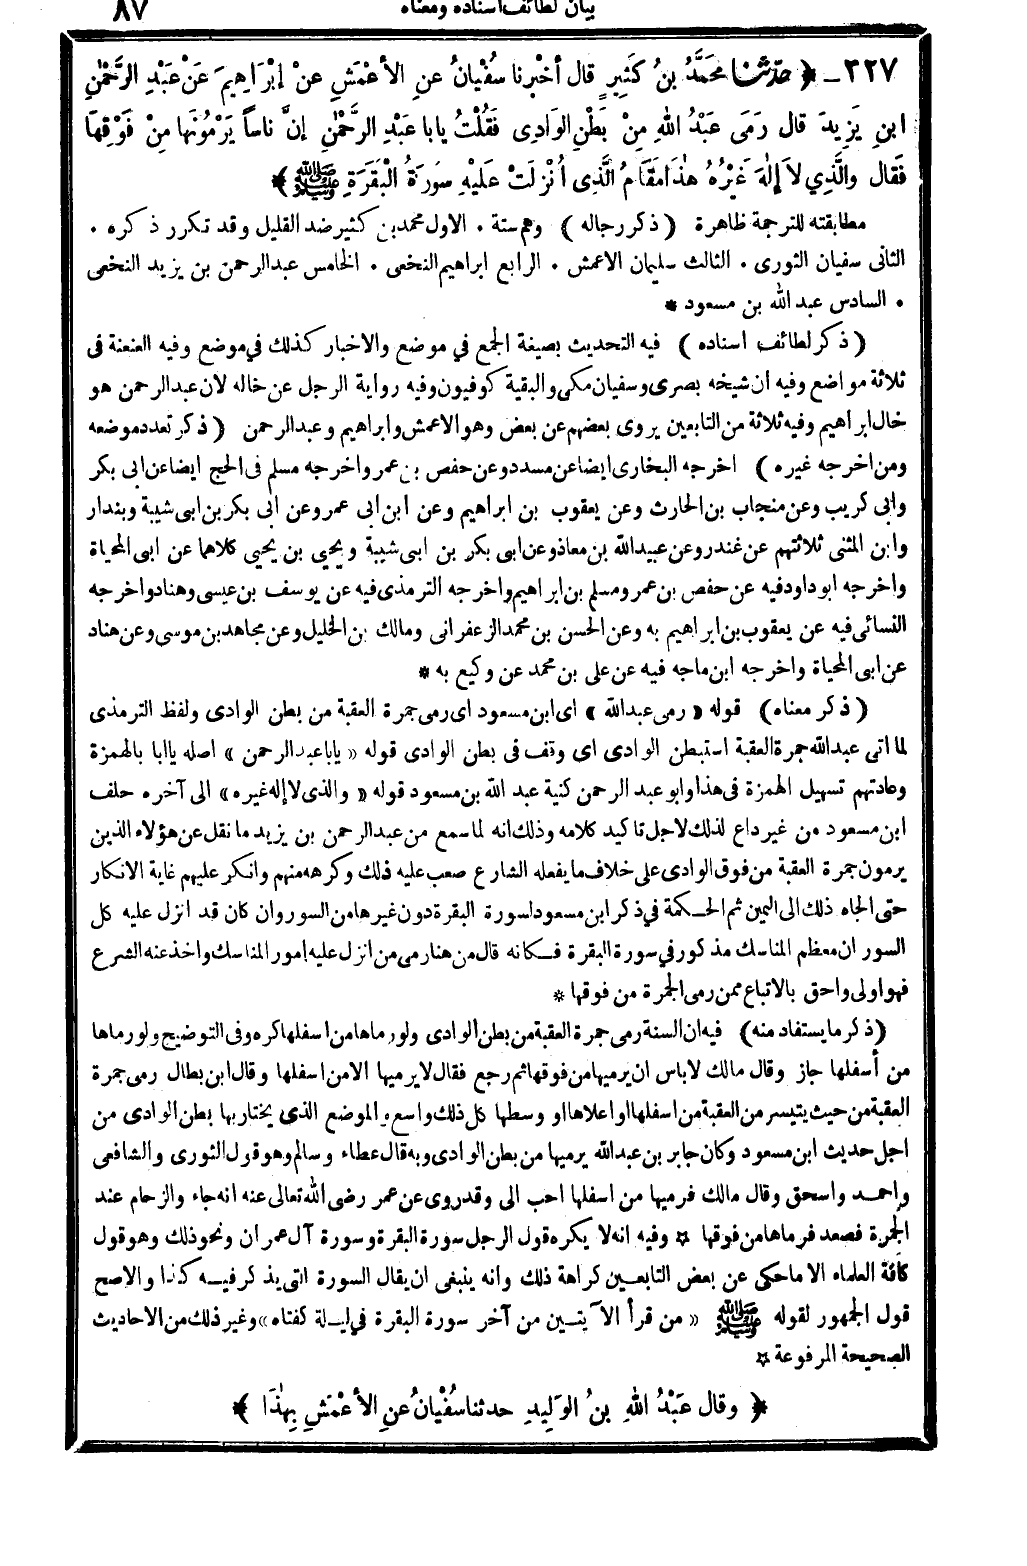 بيان لطائف اسناده ومعناه ٨٧
٣٢٧ – ﴿ حدّثنا محَمَّدُ بنُ كَثِيرٍ قال أخْبرنا سُفْيانُ عنِ الأعْمَشِ عنْ إبْرَاهِيمَ عَنْ عَبْدِ الرَّحْمٰنِ
ابنِ يَزِيدَ قال رَمَى عَبْدُ اللهِ مِنْ بَطْنِ الوَادِى فَقُلْتُ يابا عَبْدِ الرَّحْمٰنِ إنَّ ناساً يَرْمُونَها مِنْ فَوْقِهَا
فَقال والَّذِي لاَ إلٰهَ غَيْرُهُ هٰذَا مَقَامُ الَّذِى أُنْزِلَتْ عَلَيْهِ سُورَةُ الْبَقَرَةِ ﷺ ﴾
مطابقته للترجمة ظاهرة ( ذكر رجاله ) وهم ستة . الاول محمد بن كثير ضد القليل وقد تكرر ذكره .
الثانى سفيان الثورى . الثالث سليمان الاعمش . الرابع ابراهيم النخعى . الخامس عبد الرحمن بن يزيد النخعى
. السادس عبد الله بن مسعود *
( ذكر لطائف اسناده ) فيه التحديث بصيغة الجمع في موضع والاخبار كذلك في موضع وفيه العنعنة فى
ثلاثة مواضع وفيه ان شيخه بصرى وسفيان مكى والبقية كوفيون وفيه رواية الرجل عن خاله لان عبد الرحمن هو
خال ابراهيم وفيه ثلاثة من التابعين يروى بعضهم عن بعض وهو الاعمش وابراهيم وعبد الرحمن ( ذكر تعدد موضعه
ومن اخرجه غيره ) اخرجه البخارى ايضا عن مسدد وعن حفص بن عمر واخرجه مسلم فى الحج ايضا عن ابى بكر
وابى كريب وعن منجاب بن الحارث وعن يعقوب بن ابراهيم وعن ابن ابى عمر وعن ابى بكر بن ابى شيبة وبندار
وابن المثنى ثلاثتهم عن غندر وعن عبيد الله بن معاذ وعن ابى بكر بن ابى شيبة ويحيى بن يحيى كلاهما عن ابى المحياة
واخرجه ابو داود فيه عن حفص بن عمر ومسلم بن ابراهيم واخرجه الترمذى فيه عن يوسف بن عيسى وهناد واخرجه
النسائى فيه عن يعقوب بن ابراهيم به وعن الحسن بن محمد الزعفرانى ومالك بن الخليل وعن مجاهد بن موسى وعن هناد
عن ابى المحياة واخرجه ابن ماجه فيه عن على بن محمد عن وكيع به *
( ذكر معناه ) قوله « رمى عبد الله » اى ابن مسعود اى رمى جمرة العقبة من بطن الوادى ولفظ الترمذى
لما اتى عبد الله جمرة العقبة استبطن الوادى اى وقف فى بطن الوادى قوله « يابا عبد الرحمن » اصله يا ابا بالهمزة
وعادتهم تسهيل الهمزة فى هذا وابو عبد الرحمن كنية عبد الله بن مسعود قوله « والذى لا إله غيره » الى آخره حلف
ابن مسعود من غير داع لذلك لاجل تاكيد كلامه وذلك انه لما سمع من عبد الرحمن بن يزيد ما نقل عن هؤلاء الذين
يرمون جمرة العقبة من فوق الوادى على خلاف ما يفعله الشارع صعب عليه ذلك وكرهه منهم وانكر عليهم غاية الانكار
حتى الجاه ذلك الى اليمين ثم الحكمة في ذكر ابن مسعود لسورة البقرة دون غيرها من السور وان كان قد انزل عليه كل
السور ان معظم المناسك مذكور في سورة البقرة فكانه قال من هنا رمى من انزل عليه امور المناسك واخذ عنه الشرع
فهو اولى واحق بالاتباع ممن رمى الجمرة من فوقها *
( ذكر ما يستفاد منه ) فيه ان السنة رمى جمرة العقبة من بطن الوادى ولو رماها من اسفلها كره وفى التوضيح ولو رماها
من أسفلها جاز وقال مالك لا باس ان يرميها من فوقها ثم رجع فقال لا يرميها الا من اسفلها وقال ابن بطال رمى جمرة
العقبة من حيث يتيسر من العقبة من اسفلها او اعلاها او وسطها كل ذلك واسع والموضع الذى يختار بها بطن الوادى من
اجل حديث ابن مسعود وكان جابر بن عبد الله يرميها من بطن الوادى وبه قال عطاء وسالم وهو قول الثورى والشافعى
واحمد واسحق وقال مالك فرميها من اسفلها احب الى وقد روى عن عمر رضى الله تعالى عنه انه جاء والزحام عند
الجمرة فصعد فرماها من فوقها ☆ وفيه انه لا يكره قول الرجل سورة البقرة وسورة آل عمران ونحو ذلك وهو قول
كافة العلماء الا ما حكى عن بعض التابعين كراهة ذلك وانه ينبغى ان يقال السورة التى يذكر فيه كذا والاصح
قول الجمهور لقوله ﷺ « من قرأ الآيتين من آخر سورة البقرة في ليلة كفتاه » وغير ذلك من الاحاديث
الصحيحة المرفوعة ☆
﴿ وقال عَبْدُ اللهِ بنُ الوَلِيدِ حدثنا سُفْيانُ عنِ الأعْمَشِ بِهٰذَا ﴾